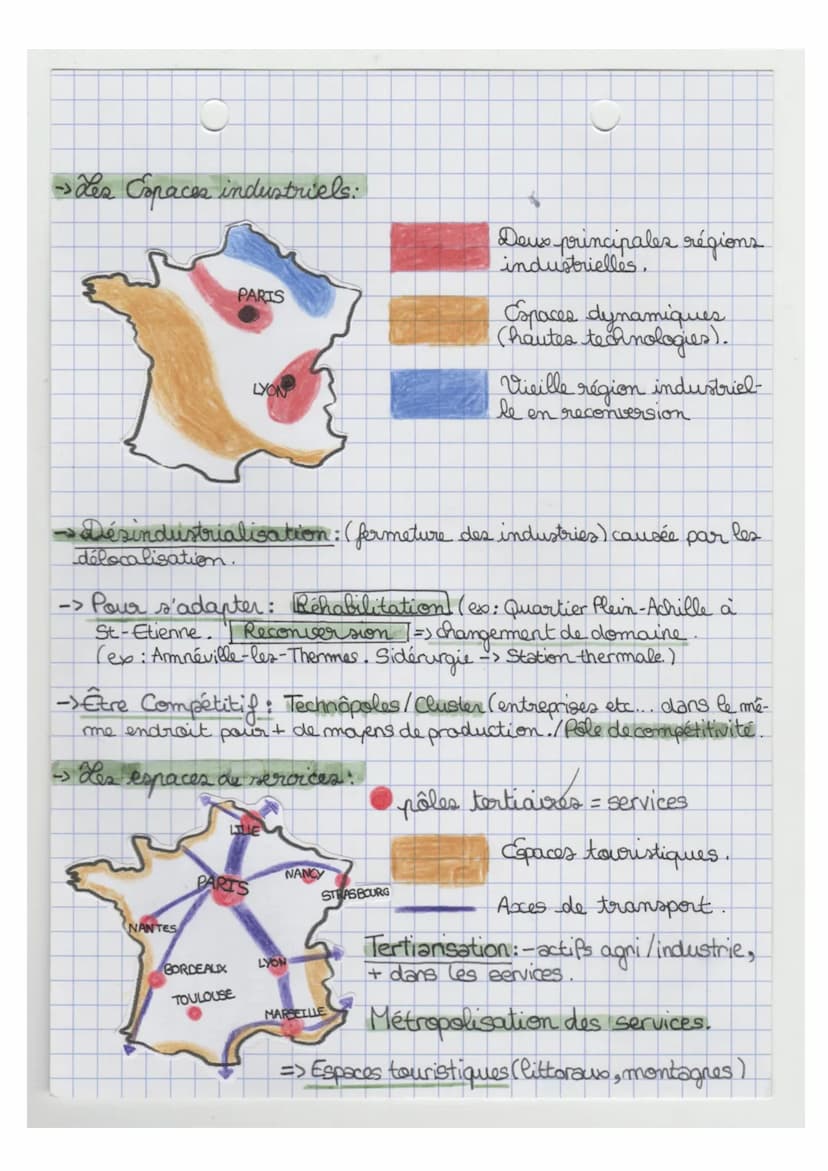 -> Les Espaces industriels:
PARIS
LYON
Deux principales régions
industrielles.
Espaces dynamiques
(hautes technologies).
Vieille région industriel-
le en reconversion
-> Désindustrialisation: (fermeture des industries) causée par les
délocalisation.
-> Pour s'adapter: Réhabilitation (ex: Quartier Plein-Achille à
St-Etienne. Reconversion => changement de domaine.
(ex: Amnéville-les-Thermes. Sidérurgie -> Station thermale.)
-> Être Compétitif: Technôpoles/Cluster (entreprises etc... dans le mê-
me endroit pour + de moyens de production./Pôle de compétitivité.
-> Les espaces de services:
LILLE
PARIS
NANCY
STRASBOURG
NANTES
BORDEAUX
LYON
TOULOUSE
MARSEILLE
pôles tertiaires = services
Espaces touristiques.
Axes de transport.
Tertiarisation: - actifs agri/industrie,
+ dans les services.
Métropolisation des services.
=> Espaces touristiques (littoraux, montagnes)